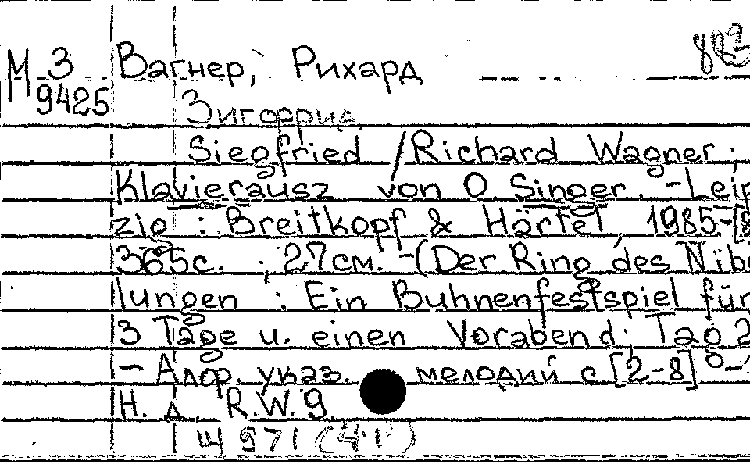 М 3 Вагнер, Рихард 883
9425 Зигфрид
Siegfried / Richard Wagner;
Klavierausz von O Singer. - Leip
zig : Breitkopf & Härtel 1985-[8
365с. ; 27см. - (Der Ring des Nibe
lungen : Ein Buhnenfestspiel für
3 Tage u. einen Vorabend; Tag 2
- Алф. указ. мелодий с [2-8]
Н. д. R.W. 9
Щ 971 (4Г)